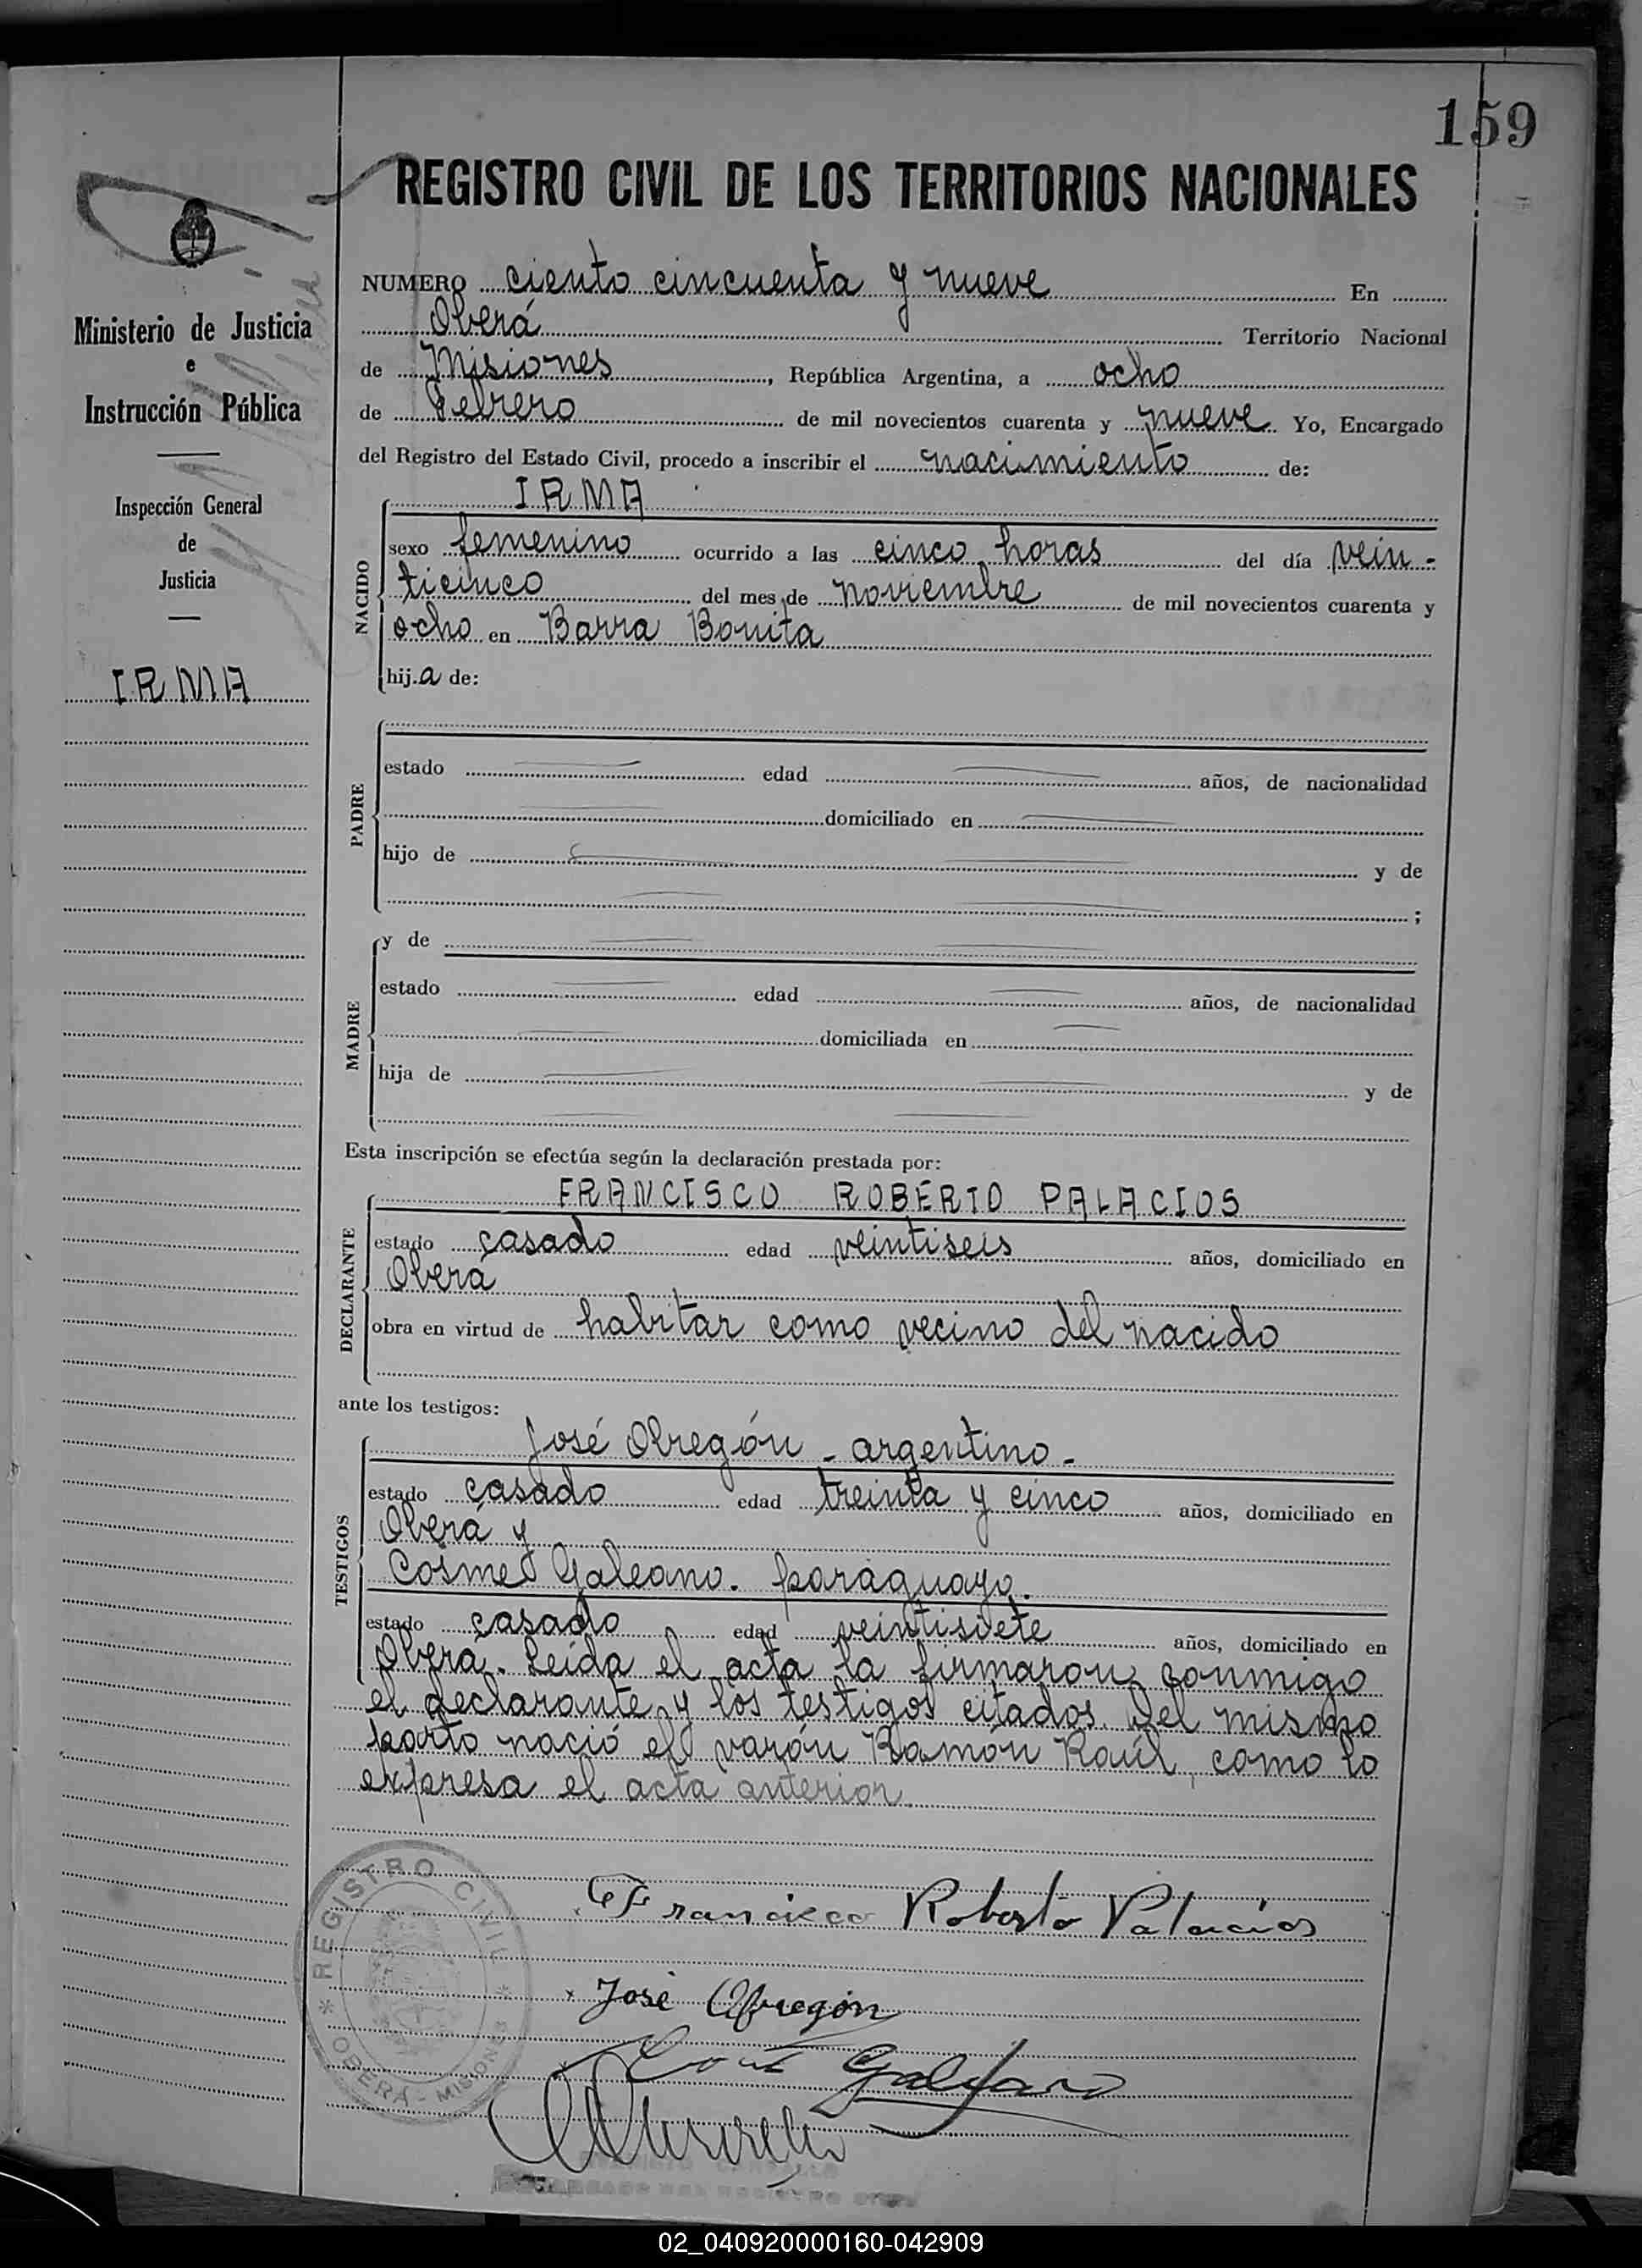 159
REGISTRO CIVIL DE LOS TERRITORIOS NACIONALES
Ministerio de Justicia
e
Instrucción Pública
Inspección General
de
Justicia
IRMA
NUMERO ciento cincuenta y nueve En
Oberá Territorio Nacional
de Misiones, República Argentina, a ocho
de Febrero de mil novecientos cuarenta y nueve Yo, Encargado
del Registro del Estado Civil, procedo a inscribir el nacimiento de:
NACIDO
IRMA
sexo femenino ocurrido a las cinco horas del día vein-
ticinco del mes de noviembre de mil novecientos cuarenta y
ocho en Barra Bonita
hija de:
PADRE
estado edad años, de nacionalidad
domiciliado en
hijo de y de
;
MADRE
y de
estado edad años, de nacionalidad
domiciliada en
hija de y de
Esta inscripción se efectúa según la declaración prestada por:
DECLARANTE
FRANCISCO ROBERTO PALACIOS
estado casado edad veintiseis años, domiciliado en
Oberá
obra en virtud de habitar como vecino del nacido
ante los testigos:
TESTIGOS
José Obregón - argentino -
estado casado edad treinta y cinco años, domiciliado en
Oberá y
Cosme Galeano. paraguayo.
estado casado edad veintisiete años, domiciliado en
Oberá. Leída el acta la firmaron conmigo
el declarante y los testigos citados. Del mismo
parto nació el varón Ramón Raúl, como lo
expresa el acta anterior.
Francisco Roberto Palacios
José Obregón
Galeano
REGISTRO CIVIL
OBERÁ - MISIONES
02_040920000160-042909